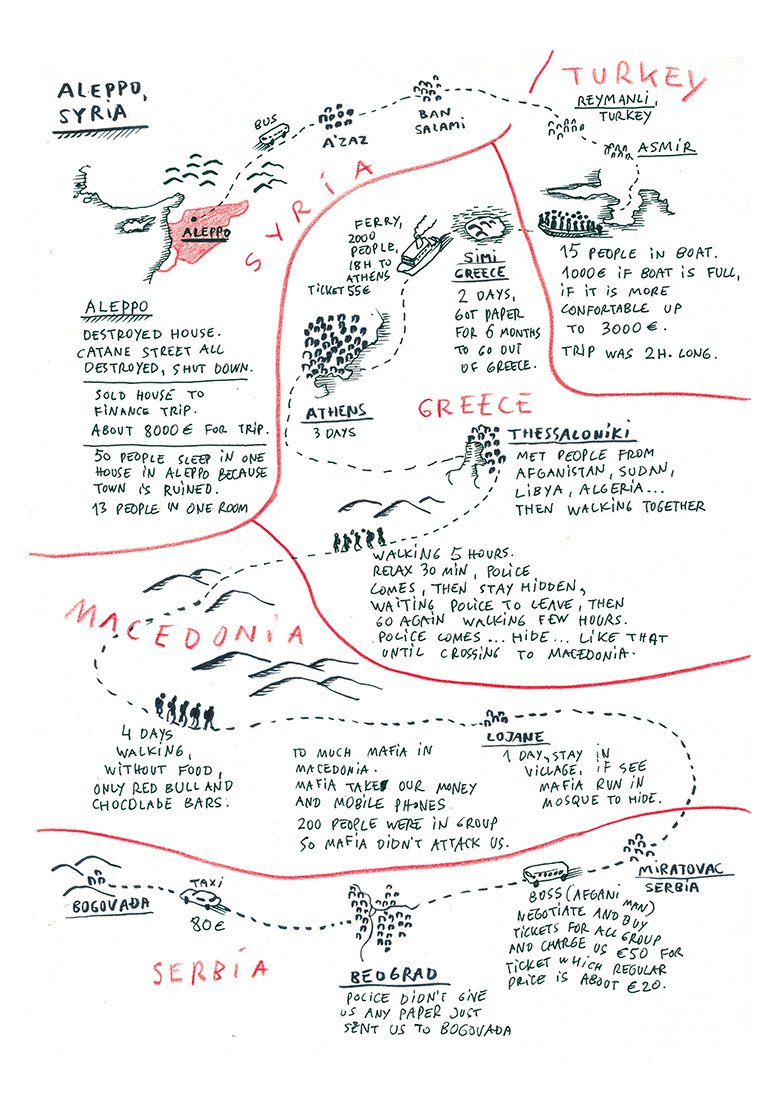 ALEPPO,
SYRIA
BUS
A'ZAZ
BAN
SALAMI
TURKEY
REYMANLI,
TURKEY
ASMIR
SYRIA
ALEPPO
FERRY,
2000
PEOPLE,
18H TO
ATHENS
TICKET 55€
SIMI
GREECE
2 DAYS,
GOT PAPER
FOR 6 MONTHS
TO GO OUT
OF GREECE.
15 PEOPLE IN BOAT.
1000€ IF BOAT IS FULL,
IF IT IS MORE
CONFORTABLE UP
TO 3000 €.
TRIP WAS 2H. LONG.
ALEPPO
DESTROYED HOUSE.
CATANE STREET ALL
DESTROYED, SHUT DOWN.
SOLD HOUSE TO
FINANCE TRIP.
ABOUT 8000€ FOR TRIP.
50 PEOPLE SLEEP IN ONE
HOUSE IN ALEPPO BECAUSE
TOWN IS RUINED.
13 PEOPLE IN ONE ROOM
ATHENS
3 DAYS
GREECE
THESSALONIKI
MET PEOPLE FROM
AFGANISTAN, SUDAN,
LIBYA, ALGERIA...
THEN WALKING TOGETHER
WALKING 5 HOURS.
RELAX 30 MIN, POLICE
COMES, THEN STAY HIDDEN,
WAITING POLICE TO LEAVE, THEN
GO AGAIN WALKING FEW HOURS.
POLICE COMES... HIDE... LIKE THAT
UNTIL CROSSING TO MACEDONIA.
MACEDONIA
4 DAYS
WALKING,
WITHOUT FOOD,
ONLY RED BULL AND
CHOCOLADE BARS.
TO MUCH MAFIA IN
MACEDONIA.
MAFIA TAKE OUR MONEY
AND MOBILE PHONES
200 PEOPLE WERE IN GROUP
SO MAFIA DIDN'T ATTACK US.
LOJANE
1 DAY, STAY IN
VILLAGE, IF SEE
MAFIA RUN IN
MOSQUE TO HIDE.
MIRATOVAC
SERBIA
BOSS (AFGANI MAN)
NEGOTIATE AND BUY
TICKETS FOR ALL GROUP
AND CHARGE US €50 FOR
TICKET WHICH REGULAR
PRICE IS ABOUT €20.
BOGOVAĐA
TAXI
80€
SERBIA
BEOGRAD
POLICE DIDN'T GIVE
US ANY PAPER JUST
SENT US TO BOGOVAĐA